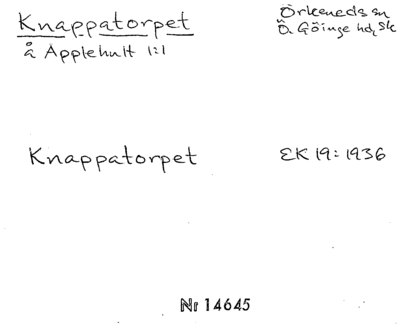 Knappatorpet
Örkeneds sn
å Applehult 1:1
Ö. Göinge hd, Sk
Knappatorpet
EK 19: 1936
Nr 14645